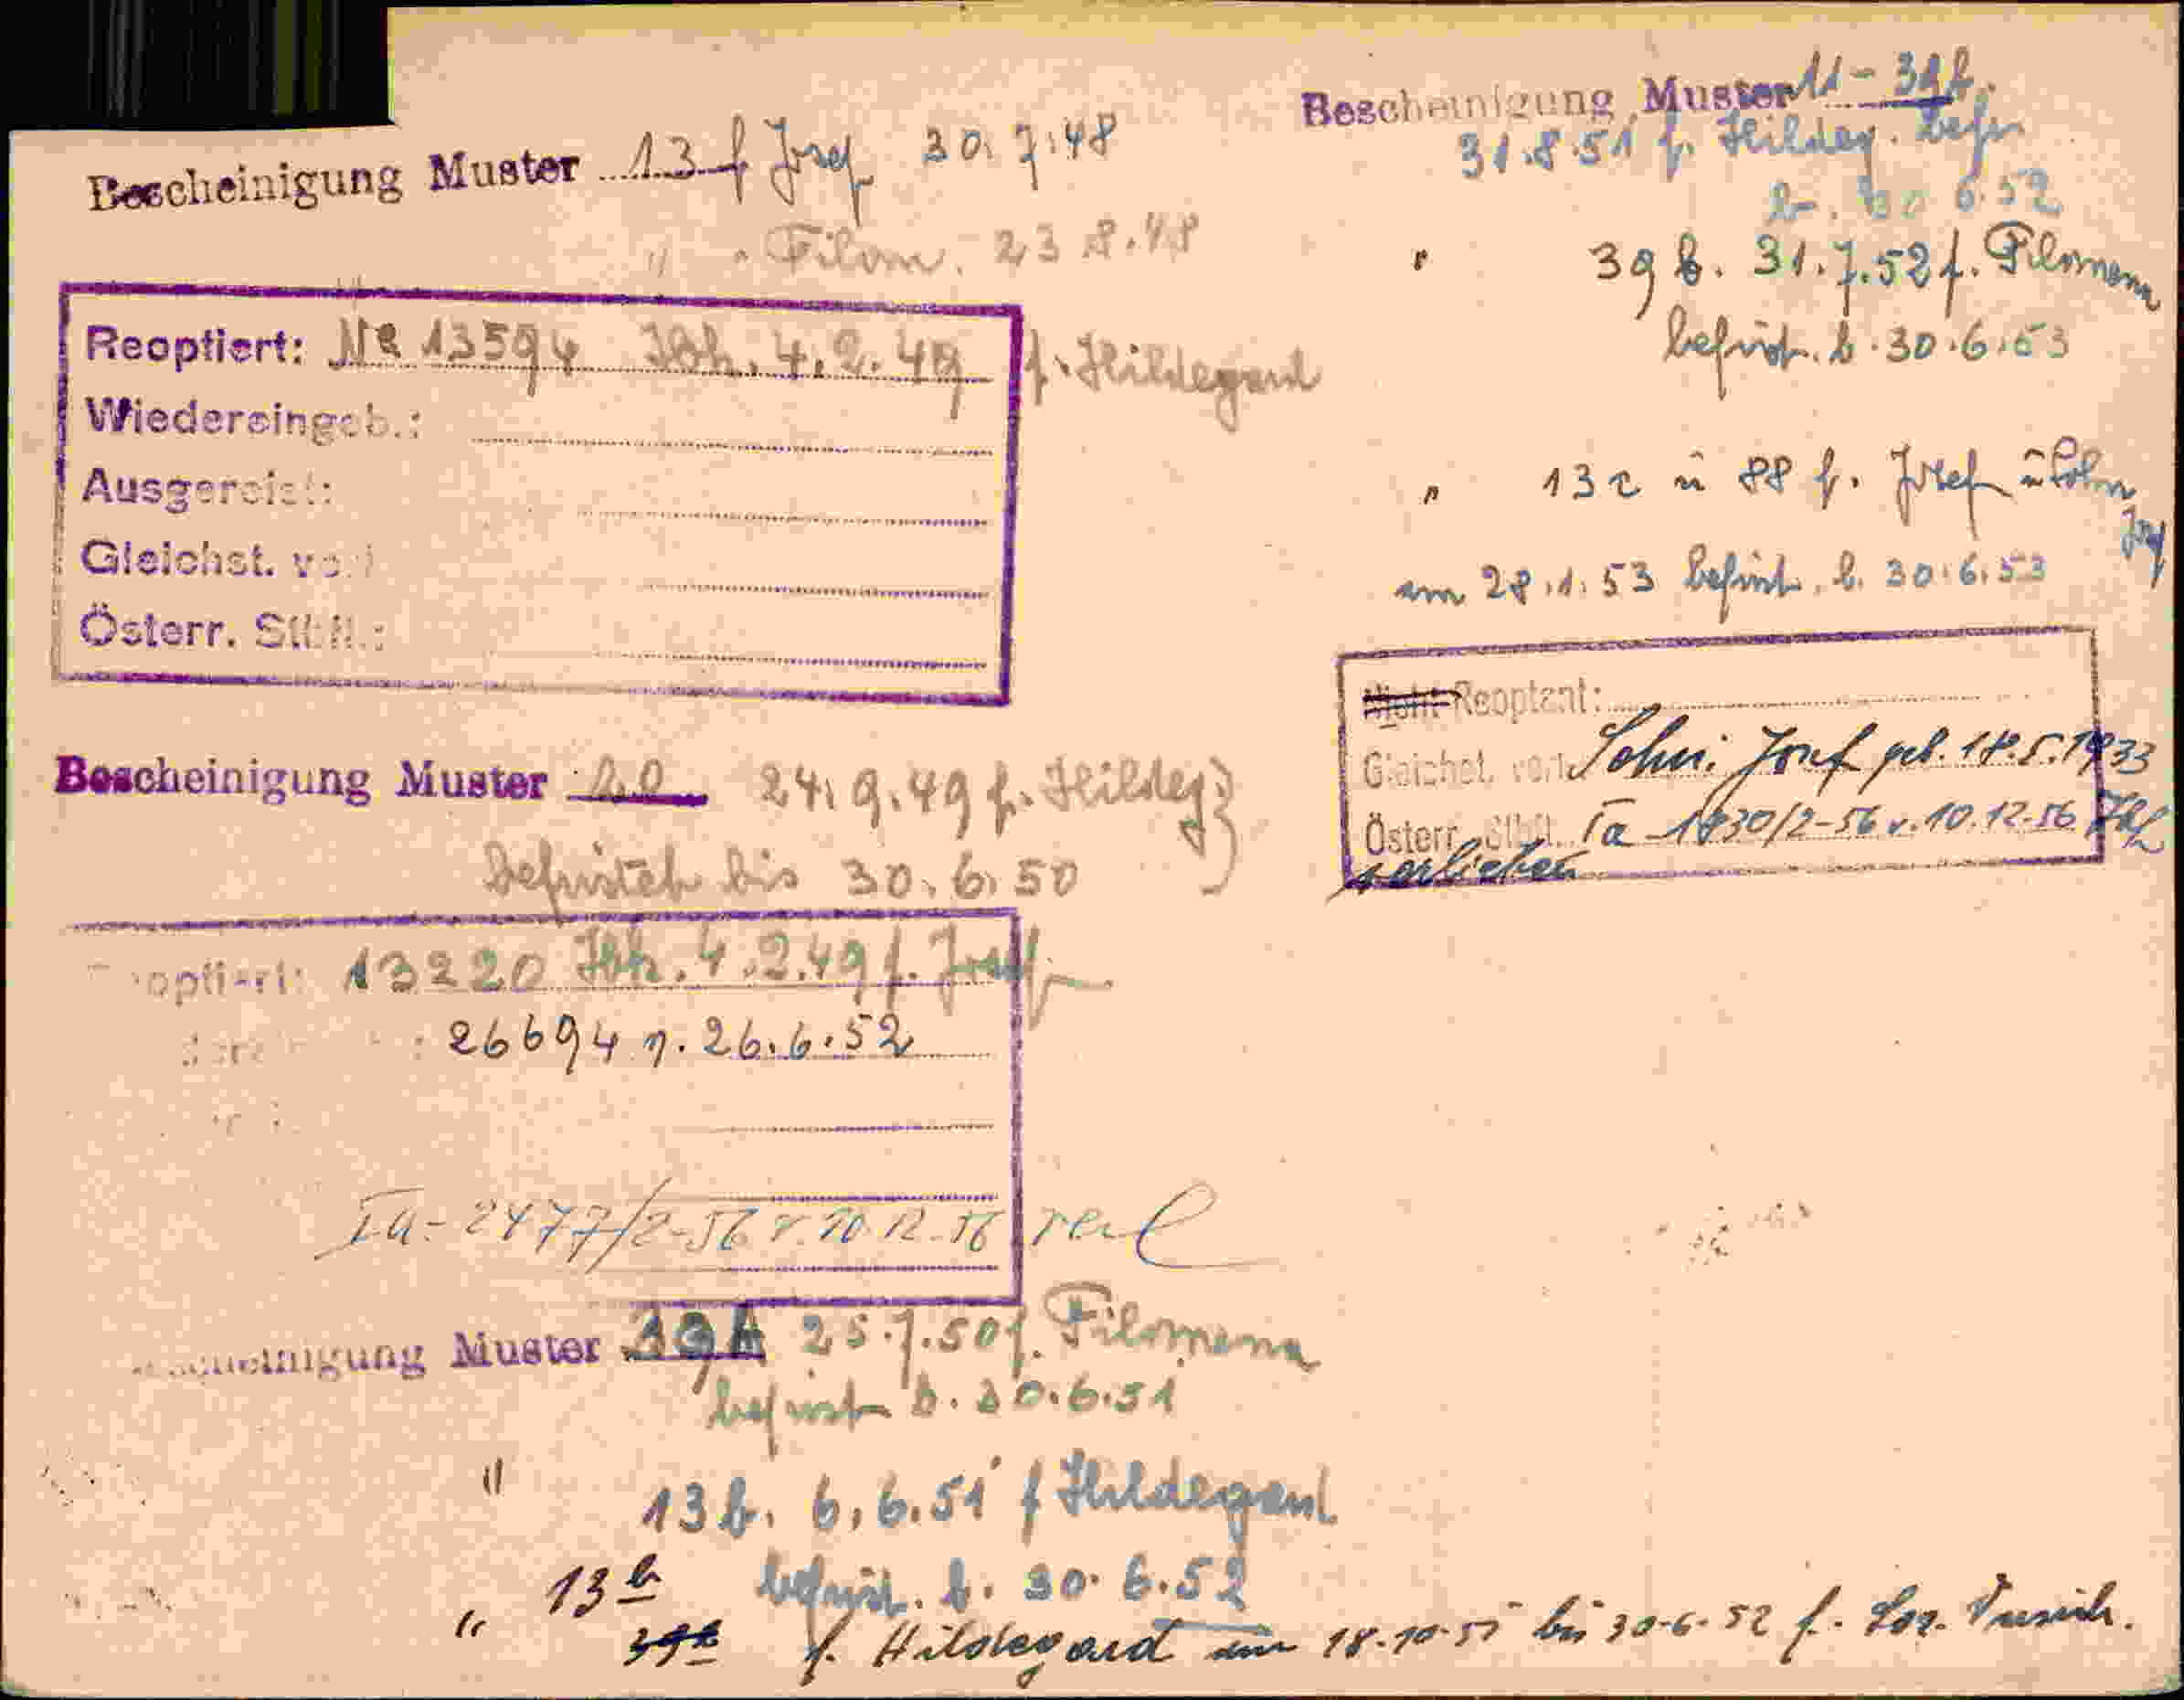 Bescheinigung Muster 13 f Josef 30.7.48
" " Filom. 23.8.48
Reoptiert: No 13594 Ibk. 4.2.49 f. Hildegard
Wiedereingeb.:
Ausgereist:
Gleichst. verl
Österr. Stb
Bescheinigung Muster 24.9.49 f. Hildeg.
befristet bis 30.6.50
optiert: 13220 Ibk. 4.2.49 f. Josef
26694 v. 26.6.52
Ia-2477/2-56 v. 10.12.56
Muster 39b 25.7.50 f. Filomena
befrist. b. 30.6.51
" 13b. 6.6.51 f Hildegard
befrist. b. 30.6.52
" 13b
39b f. Hildegard am 18.10.51 bis 30.6.52 f. Soz.
Bescheinigung Muster 11 - 39b.
31.8.51 f. Hildeg. befr
b. 30 6.52
" 39 b. 31.7.52 f. Filomena
befrist. b. 30.6.53
" 13 c u 88 f. Josef u Sohn
Josef
am 28.1.53 befrist. b. 30.6.53
Nicht-Reoptant:
Gleichst. verl Sohn: Josef geb. 18.5.1933
Österr. Stb. Ia - 1830/2-56 v. 10.12.56
verliehen